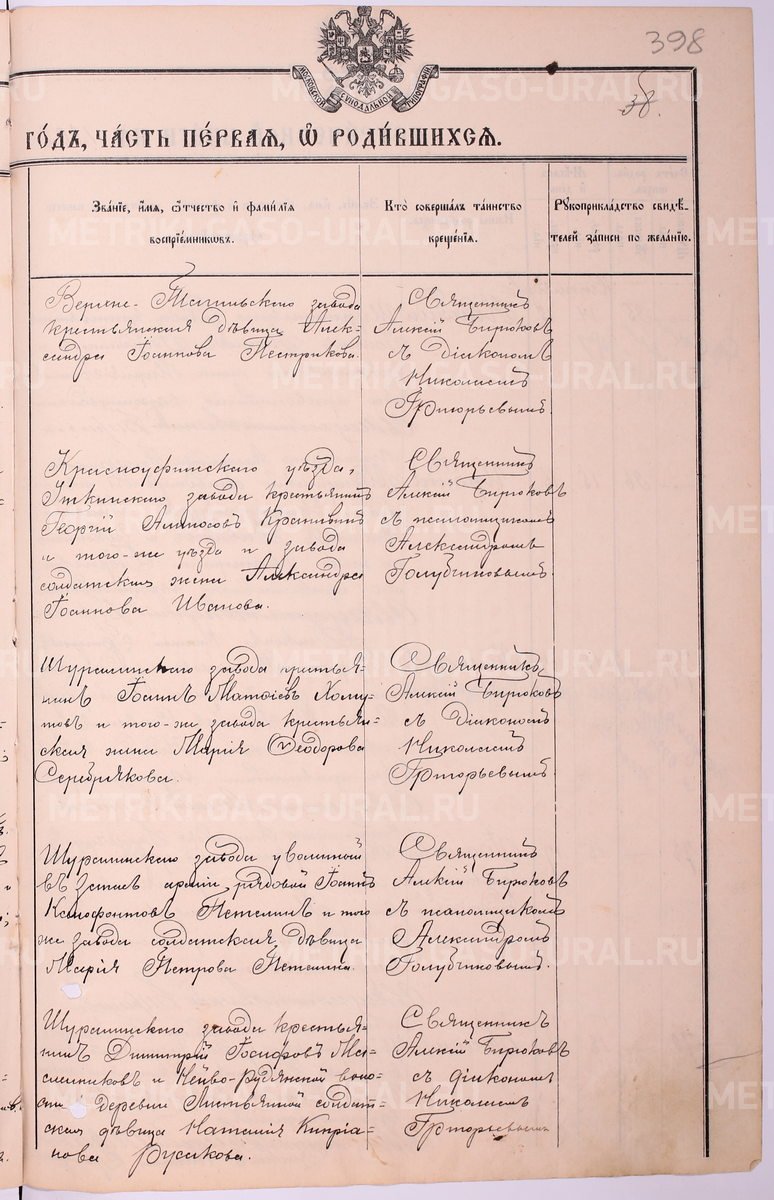 398
38.
МОСКОВСКОЙ СѴНОДАЛЬНОЙ ТИПОГРАФІИ
ГО́ДЪ, ЧА́СТЬ ПЕ́РВАЯ, Ѡ҆ РОДИ́ВШИХСЯ.
Зва́нїе, и҆́мя, ѻ҆́тчество и҆ фами́лїя
воспрїе́мниковъ.
Кто̀ соверша́лъ та́инство
креще́нїя.
Рꙋкоприкла́дство свидѣ́-
телей за́писи по жела́нїю.
Верхне-Тагильскаго завода
крестьянская дѣвица Алек-
сандра Іоаннова Пестрикова.
Священникъ
Алексій Бирюковъ
съ Діакономъ
Николаемъ
Григорьевымъ.
Красноуфимскаго уѣзда,
Уткинскаго завода крестьянинъ
Георгій
и того-же уѣзда и завода
солдатская жена Александра
Іоаннова Иванова.
Священникъ
Алексій Бирюковъ
съ псаломщикомъ
Александромъ
Голубчиковымъ.
Шуралинскаго завода крестья-
нинъ Іоаннъ Матѳіевъ Хому-
товъ и того-же завода крестьян-
ская жена Марія Ѳеодорова
Серебрякова.
Священникъ
Алексій Бирюковъ
съ Діакономъ
Николаемъ
Григорьевымъ.
Шуралинскаго завода уволенной
въ запасъ арміи рядовой Іоаннъ
Ксенофонтовъ Петелинъ и того
же завода солдатская дѣвица
Марія Петрова Петелина.
Священникъ
Алексій Бирюковъ
съ псаломщикомъ
Александромъ
Голубчиковымъ.
Шуралинскаго завода крестья-
нинъ Димитрій Іосифовъ Мас-
слениковъ и Нейво-Рудянской воло-
сти деревни Листвянной солдат-
ская дѣвица Наталія Кипріа-
нова Русакова.
Священникъ
Алексій Бирюковъ
съ діакономъ
Николаемъ
Григорьевымъ
METRIKI.GASO-URAL.RU